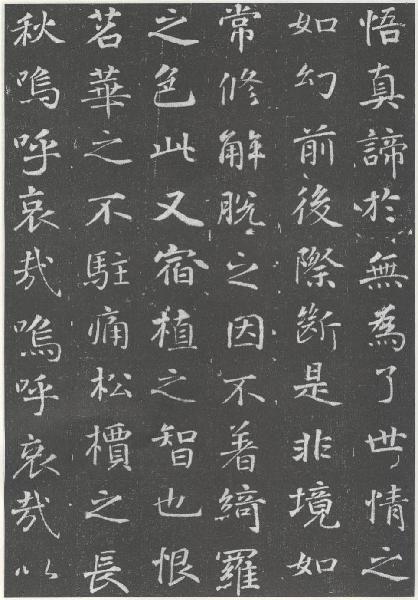 悟真諦於無為了世情之
如幻前後際斷是非境如
常修解脫之因不著綺羅
之色此又宿植之智也恨
苕華之不駐痛松檟之長
秋嗚呼哀哉嗚呼哀哉以